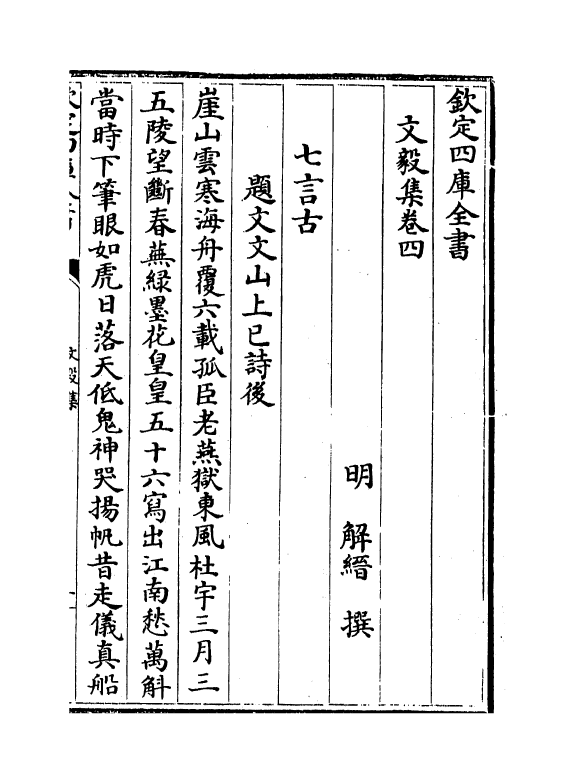 欽定四庫全書
文毅集卷四
明 解縉 撰
七言古
題文文山上巳詩後
崖山雲寒海舟覆六載孤臣老燕獄東風杜宇三月三
五陵望斷春蕪緑墨花皇皇五十六寫出江南愁萬斛
當時下筆眼如虎日落天低鬼神哭揚帆昔走儀真船
欽定四庫全書
文毅集
一